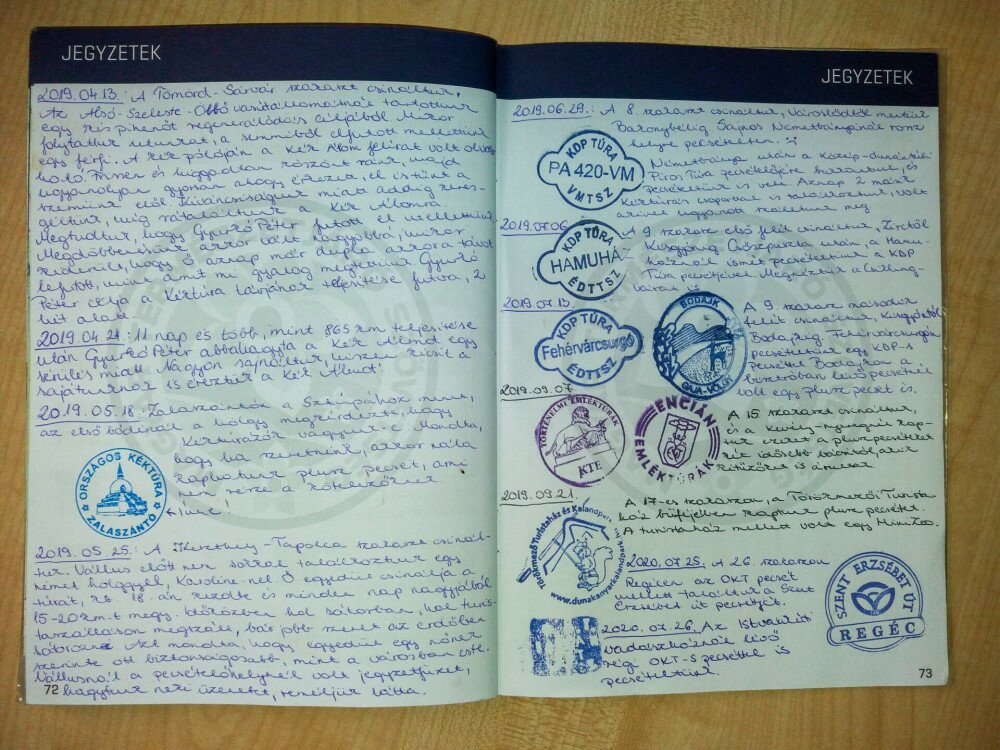 JEGYZETEK
2019.04.13.: A Tömörd-Sárvár szakaszt csináltuk.
Az Alsó-Szeleste-Ölbő vasútállomásnál tartottunk
egy kis pihenőt regenerálódás céljából. Mikor
folytattuk utunkat, a semmiből elfutott mellettünk
egy férfi. A kék pólóján a Kék Álom felirat volt olvas-
ható. Frissen és lazán köszönt ránk, majd
ugyanolyan gyorsan ahogy érkezett, el is tűnt a
szemünk elől. Kíváncsiságunk miatt addig keres-
géltünk, míg rátaláltunk a Kék Álomra.
Megtudtuk, hogy Gyurkó Péter futott el mellettünk.
Megdöbbenésünk akkor vált nagyobbá, mikor
kiderült, hogy ő aznap már dupla akkora távot
lefutott, mint amit mi gyalog megtettünk. Gyurkó
Péter célja a Kéktúra távjának teljesítése futva, 2
hét alatt.
2019.04.24.: 11 nap és több, mint 865 km teljesítése
után Gyurkó Péter abbahagyta a Kék Álmot egy
sérülés miatt. Nagyon sajnáltuk, hiszen kicsit a
sajátunknak is éreztük a Kék Álmot!
2019.05.18. Zalaszántón a Sztúpához menet,
az első bódénál a hölgy megkérdezte, hogy
Kéktúrázók vagyunk-e. Mondta,
hogy ha szeretnénk, akkor nála
kaphatunk plusz pecsét, ami
nem része a kötelezőknek.
← Íme!
ORSZÁGOS KÉKTÚRA
ZALASZÁNTÓ
2019.05.25.: A Keszthely-Tapolca szakaszt csinál-
tuk. Vállus előtt nem sokkal találkoztunk egy
német hölggyel, Karoline-nel. Ő egyedül csinálja a
túrát, 18-án kezdte és minden nap nagyjából
15-20 km-t megy. Időközben hol sátorban, hol turis-
taszálláson megszáll, bár jobb szeret az erdőben
sátorozni. Azt mondta, hogy egyedül egy nőnek
szerinte ott biztonságosabb, mint a városban este.
Vállusnál a pecsételőhelynél volt jegyzetfüzet,
hagytunk neki üzenetet, reméljük látta.
72
JEGYZETEK
2019.06.29.: A 8. szakaszt csináltuk, Városlődtől mentünk
Bakonybélig. Sajnos Németbányánál rossz
helyre pecsételtem. :(
Németbánya után a Közép-dunántúli
Piros Túra pecsételőjére bukkantunk, és
pecsételtünk is vele. Aznap 2 másik
Kéktúrás csoporttal is találkoztunk, volt
akivel ugyanott szálltunk meg.
KDP TÚRA
PA 420-VM
VMTSZ
2019.07.06.
A 9. szakasz első felét csináltuk, Zirctől
Kisgyónig. Csőszpuszta után, a Hamu-
háznál ismét pecsételtünk a KDP
Túra pecsétjével. Megnéztük a Csilleng-
KDP TÚRA
HAMUHÁZ
EDTTSZ
2019.07.13.
A 9. szakasz második
felét csináltuk, Kisgyóntól
Bodajkig. Fehérvárcsurgón
pecsételtünk egy KDP-s
pecséttel. Bodajkon a
büsztróban lévő pecsétnél
volt egy plusz pecsét is.
KDP TÚRA
Fehérvárcsurgó
EDTTSZ
BODAJK
GAJA-VÖLGY
2019.09.07
A 15. szakaszt csináltuk,
TÖRTÉNELMI EMLÉKTÚRÁK
KTE
ENCIÁN
EMLÉKTÚRÁK
2019.09.21.
A 17-es szakaszon, a Törökmezői Turista-
ház büféjében kaptunk plusz pecsétet.
A turistaház mellett volt egy MiniZoo.
Törökmező Turistaház és Kalandpark
www.dunakanyarkalandpark.hu
2020.07.25. A 26. szakaszon
Regécen az OKT pecsét
mellett találtuk a Szent
Erzsébet út pecsétjét.
SZENT ERZSÉBET ÚT
REGÉC
2020.07.26. Az Istvánkúti
vadászháznál lévő
régi OKT-s pecséttel is
pecsételtünk.
73